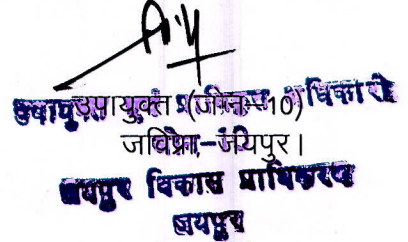 उपायुक्त (जोन-10)
जविप्रा, जयपुर।
जयपुर विकास प्राधिकरण
जयपुर